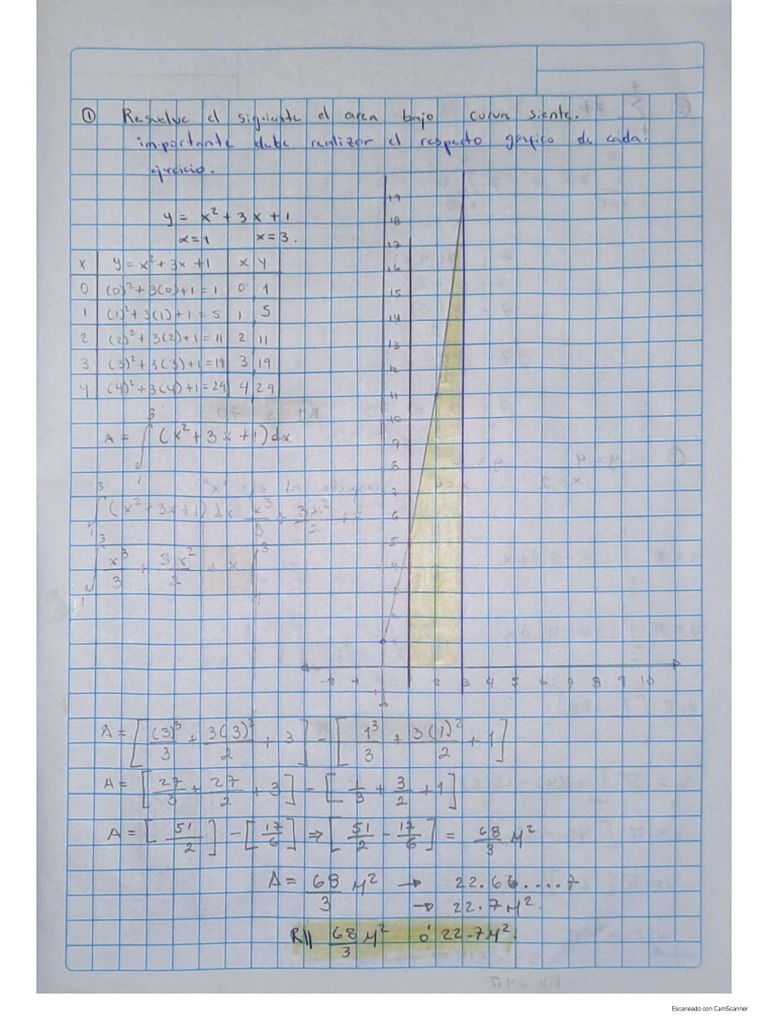 ① Resuelve el siguiente el area bajo curva siente.
importante debe realizar el respecto grafico de cada
ejercicio.
y = x² + 3x + 1
x = 1 x = 3.
x y = x² + 3x + 1 x y
0 (0)² + 3(0) + 1 = 1 0 1
1 (1)² + 3(1) + 1 = 5 1 5
2 (2)² + 3(2) + 1 = 11 2 11
3 (3)² + 3(3) + 1 = 19 3 19
4 (4)² + 3(4) + 1 = 29 4 29
A = ∫₁³ (x² + 3x + 1) dx
∫₁³ (x² + 3x + 1) dx x³/3 + 3x²/2 + x
∫₁³ x³/3 + 3x²/2 + x ∫₁³
19
18
17
16
15
14
13
12
11
10
9
8
7
6
5
4
3
1
-2 -1 2 3 4 5 6 7 8 9 10
-1
A = [(3)³/3 + 3(3)²/2 + 3] - [1³/3 + 3(1)²/2 + 1]
A = [27/3 + 27/2 + 3] - [1/3 + 3/2 + 1]
A = [51/2] - [17/6] ⇒ [51/2 - 17/6] = 68/3 M²
A = 68/3 M² → 22.66....7
→ 22.7 M².
R// 68/3 M² ó 22.7 M².
Escaneado con CamScanner